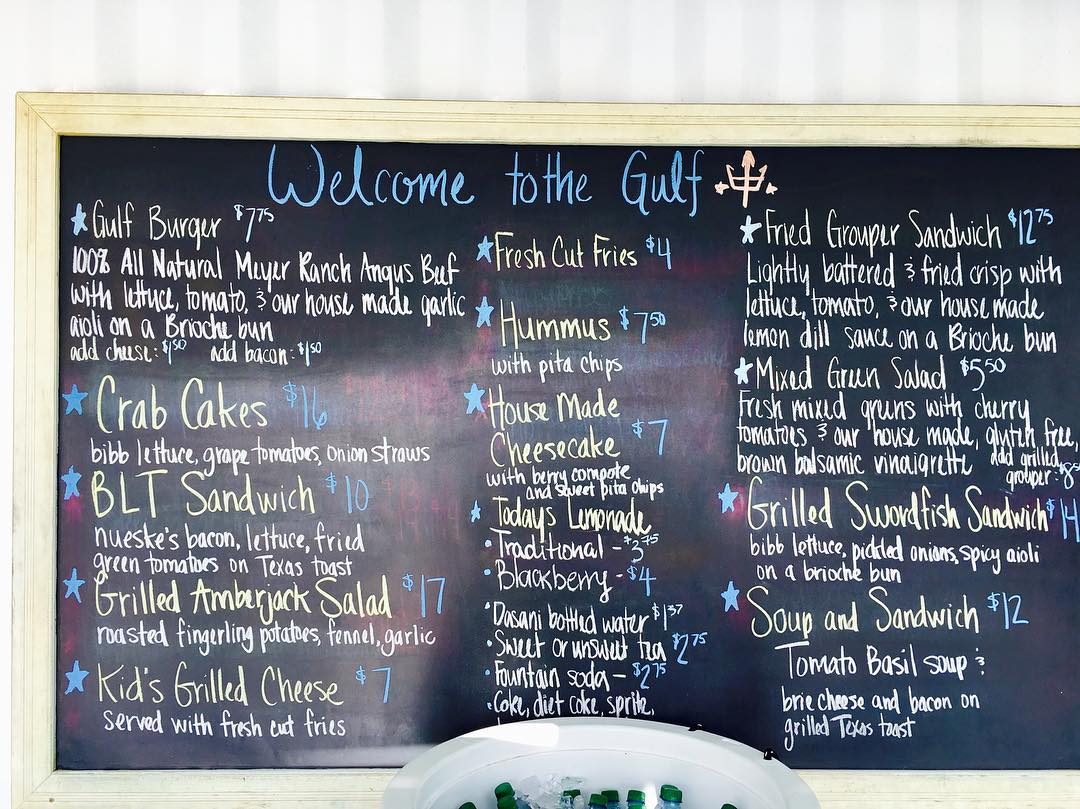 Welcome to the Gulf
Gulf Burger $7.75
100% All Natural Meyer Ranch Angus Beef
with lettuce, tomato, & our house made garlic
aioli on a Brioche bun
add cheese: $1.50 add bacon: $1.50
Crab Cakes $16
bibb lettuce, grape tomatoes, onion straws
BLT Sandwich $10
nueske's bacon, lettuce, fried
green tomatoes on Texas toast
Grilled Amberjack Salad $17
roasted fingerling potatoes, fennel, garlic
Kid's Grilled Cheese $7
served with fresh cut fries
Fresh Cut Fries $4
Hummus $7.50
with pita chips
House Made
Cheesecake $7
with berry compote
and sweet pita chips
Today's Lemonade
• Traditional - $3.75
• Blackberry - $4
• Dasani bottled water $1.37
• Sweet or unsweet tea $2.75
• Fountain soda - $2.75
• Coke, diet coke, sprite,
Fried Grouper Sandwich $12.75
Lightly battered & fried crisp with
lettuce, tomato, & our house made
lemon dill sauce on a Brioche bun
Mixed Green Salad $5.50
Fresh mixed greens with cherry
tomatoes & our house made, gluten free,
brown balsamic vinaigrette add grilled
grouper: $8
Grilled Swordfish Sandwich $14
bibb lettuce, pickled onions, spicy aioli
on a brioche bun
Soup and Sandwich $12
Tomato Basil soup &
brie cheese and bacon on
grilled Texas toast